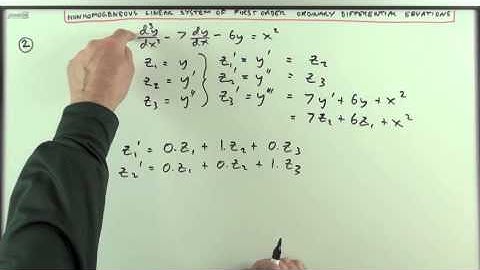 NONHOMOGENEOUS LINEAR SYSTEM OF FIRST ORDER ORDINARY DIFFERENTIAL EQUATIONS
② d³y/dx³ - 7 dy/dx - 6y = x²
z₁ = y } z₁' = y' = z₂
z₂ = y' } z₂' = y'' = z₃
z₃ = y'' } z₃' = y''' = 7y' + 6y + x²
= 7z₂ + 6z₁ + x²
z₁' = 0.z₁ + 1.z₂ + 0.z₃
z₂' = 0.z₁ + 0.z₂ + 1.z₃